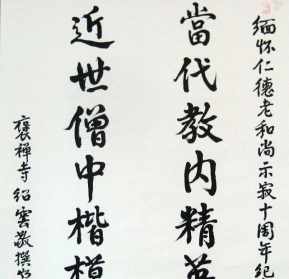 缅怀仁德老和尚示寂十周年纪
當代教内精英
近世僧中楷模
褒禅寺绍雲敬撰